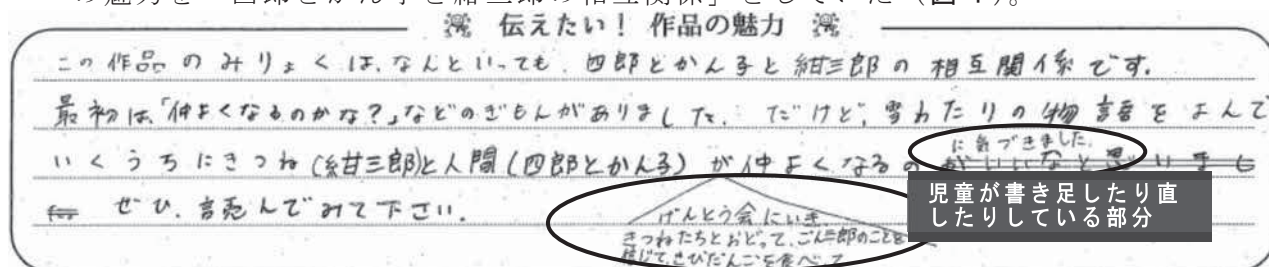 の魅力を「四郎とかん子と紺三郎の相互関係」としていた(図4)。
伝えたい! 作品の魅力
この作品のみりょくは、なんといっても、四郎とかん子と紺三郎の相互関係です。
最初は、「仲よくなるのかな?」などのぎもんがありました。だけど、雪わたりの物語をよんで
いくうちにきつね(紺三郎)と人間(四郎とかん子)が仲よくなるのがいいなと思いまし
に気づきました。
た ぜひ、読んでみて下さい。
げんとう会にいき
きつねたちとおどって、ごん三郎のことを
信じて、きびだんごを食べって
児童が書き足したり直
したりしている部分